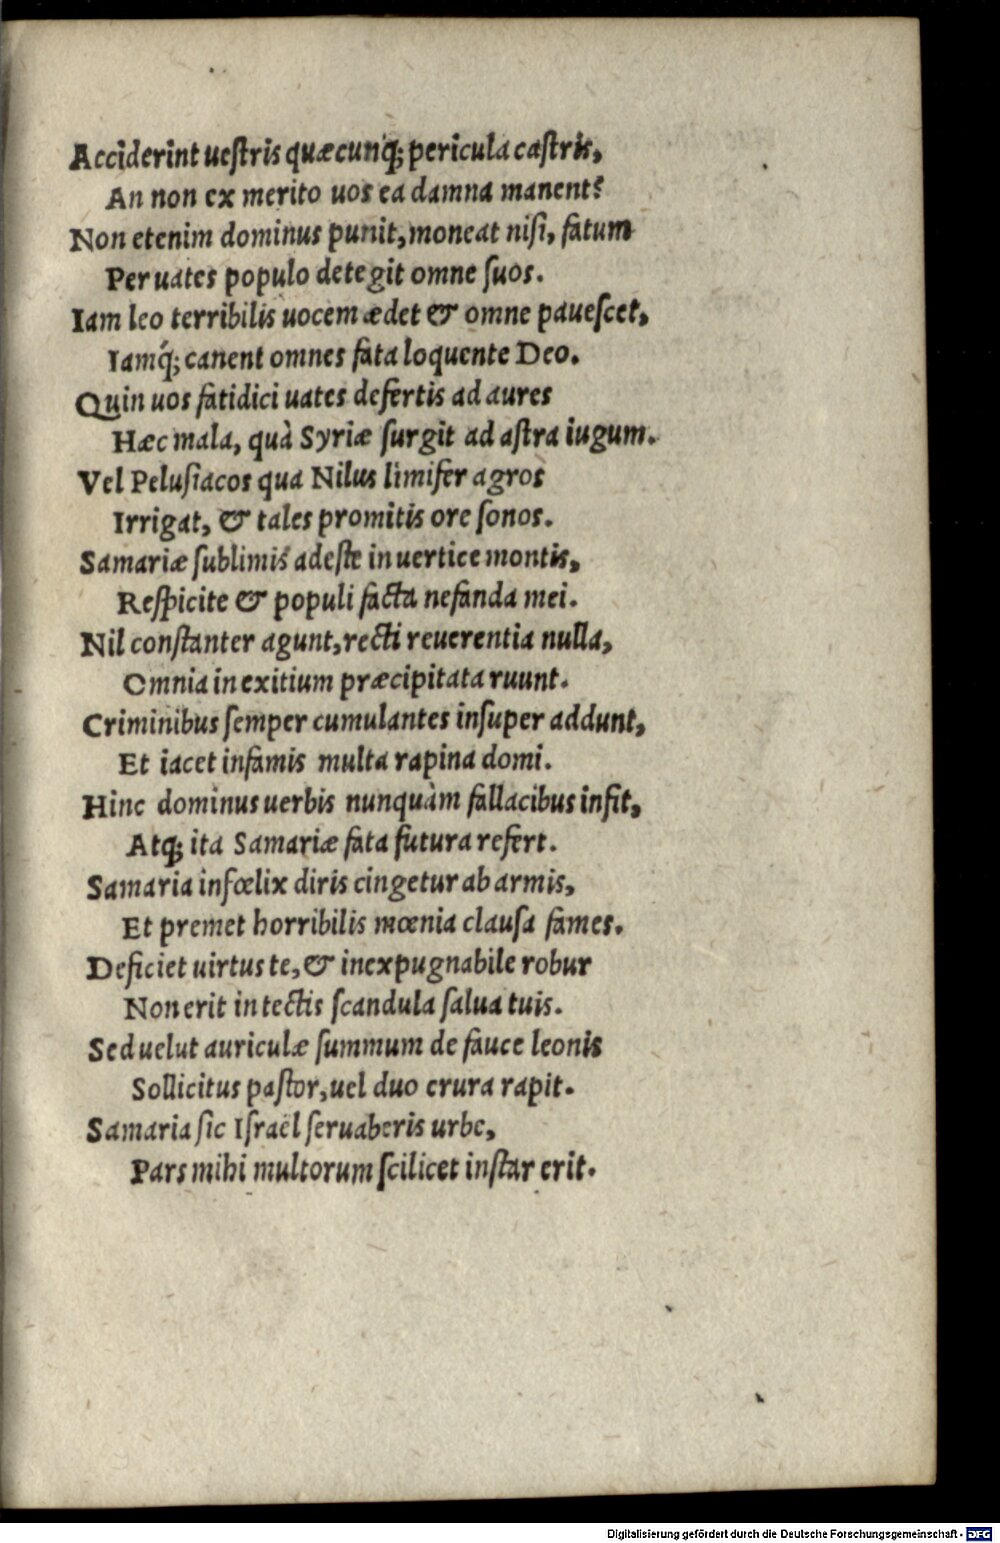 Acciderint ueſtris quæcunq; pericula caſtris,
An non ex merito uos ea damna manent?
Non etenim dominus punit, moneat niſi, fatum
Per uates populo detegit omne ſuos.
Iam leo terribilis uocem ædet & omne paueſcet,
Iamq́; canent omnes fata loquente Deo.
Quin uos fatidici uates defertis ad aures
Hæc mala, quà Syriæ ſurgit ad aſtra iugum.
Vel Peluſiacos qua Nilus limifer agros
Irrigat, & tales promitis ore ſonos.
Samariæ ſublimis adeſte in uertice montis,
Reſpicite & populi facta nefanda mei.
Nil conſtanter agunt, recti reuerentia nulla,
Omnia in exitium præcipitata ruunt.
Criminibus ſemper cumulantes inſuper addunt,
Et iacet infamis multa rapina domi.
Hinc dominus uerbis nunquàm fallacibus infit,
Atq; ita Samariæ fata futura refert.
Samaria infœlix diris cingetur ab armis,
Et premet horribilis mœnia clauſa fames.
Deficiet uirtus te, & inexpugnabile robur
Non erit in tectis ſcandula ſalua tuis.
Sed uelut auriculæ ſummum de fauce leonis
Sollicitus paſtor, uel duo crura rapit.
Samaria ſic Iſraël ſeruaberis urbe,
Pars mihi multorum ſcilicet inſtar erit.
Digitalisierung gefördert durch die Deutsche Forschungsgemeinschaft - DFG